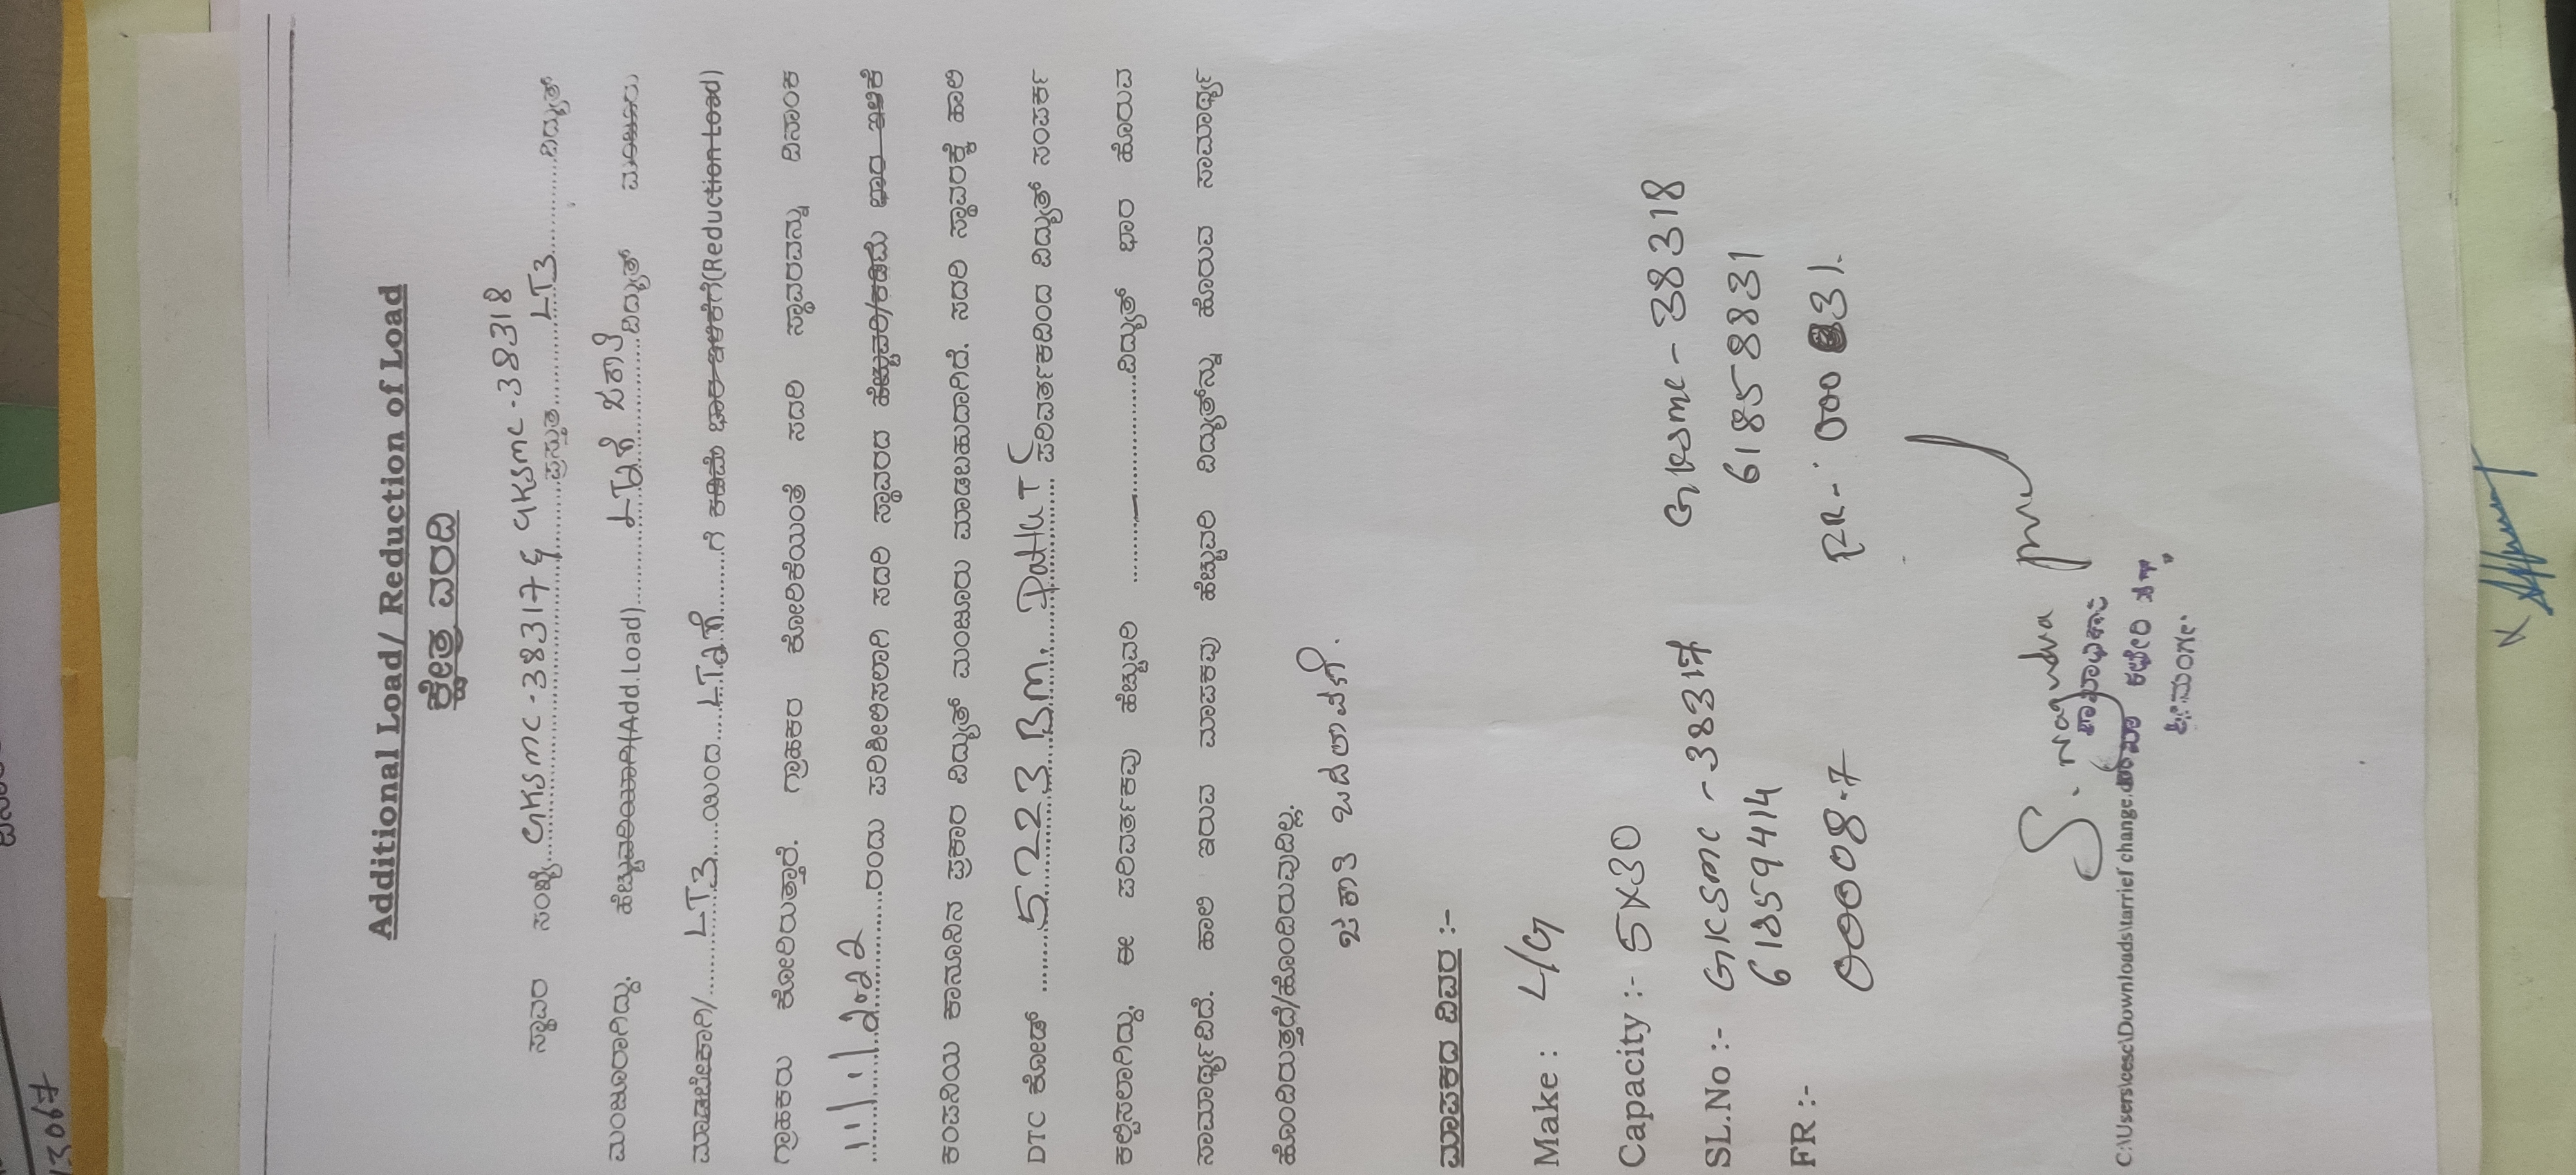 Additional Load/ Reduction of Load
ಕ್ಷೇತ್ರ ವರದಿ
ಸ್ಥಾವರ ಸಂಖ್ಯೆ GKSMC-38317 & GKSMC-38318 ಪ್ರಸ್ತುತ LT3 ವಿದ್ಯುತ್
ಮಂಜೂರಾಗಿದ್ದು, ಹೆಚ್ಚುವರಿಯಾಗಿ(Add.Load) ವಿದ್ಯುತ್ ಮಂಜೂರು
ಮಾಡಬೇಕಾಗಿ/ LT3 ಯಿಂದ LT2 ಗೆ ಕಡಿಮೆ ಭಾರ ಇಳಿಕೆಗೆ(Reduction Load)
ಗ್ರಾಹಕರು ಕೋರಿರುತ್ತಾರೆ. ಗ್ರಾಹಕರ ಕೋರಿಕೆಯಂತೆ ಸದರಿ ಸ್ಥಾವರವನ್ನು ದಿನಾಂಕ
11/1/2022 ರಂದು ಪರಿಶೀಲಿಸಲಾಗಿ ಸದರಿ ಸ್ಥಾವರದ ಹೆಚ್ಚುವರಿ/ಕಡಿಮೆ ಭಾರ ಇಳಿಕೆ
ಕಂಪನಿಯ ಕಾನೂನಿನ ಪ್ರಕಾರ ವಿದ್ಯುತ್ ಮಂಜೂರು ಮಾಡಬಹುದಾಗಿದೆ. ಸದರಿ ಸ್ಥಾವರಕ್ಕೆ ಹಾಲಿ
DTC ಕೋಡ್ 5223 BM, ಪರಿವರ್ತಕದಿಂದ ವಿದ್ಯುತ್ ಸಂಪರ್ಕ
ಕಲ್ಪಿಸಲಾಗಿದ್ದು, ಈ ಪರಿವರ್ತಕವು ಹೆಚ್ಚುವರಿ ವಿದ್ಯುತ್ ಭಾರ ಹೊರುವ
ಸಾಮಾರ್ಥ್ಯವಿದೆ. ಹಾಲಿ ಇರುವ ಮಾಪಕವು ಹೆಚ್ಚುವರಿ ವಿದ್ಯುತ್‌ನ್ನು ಹೊರುವ ಸಾಮಾರ್ಥ್ಯ
ಹೊಂದಿರುತ್ತದೆ/ಹೊಂದಿರುವುದಿಲ್ಲ.
ಜಕಾತಿ ಬದಲಾವಣೆ.
ಮಾಪಕದ ವಿವರ :-
Make : L/G
Capacity :- 5x30
SL.No :- GKSMC - 38317 GKSMC - 38318
61859414 61858831
FR :- 00008.7 FR- 00031.
S. Nagendra
C:\Users\cesc\Downloads\tarrief change.d
13067